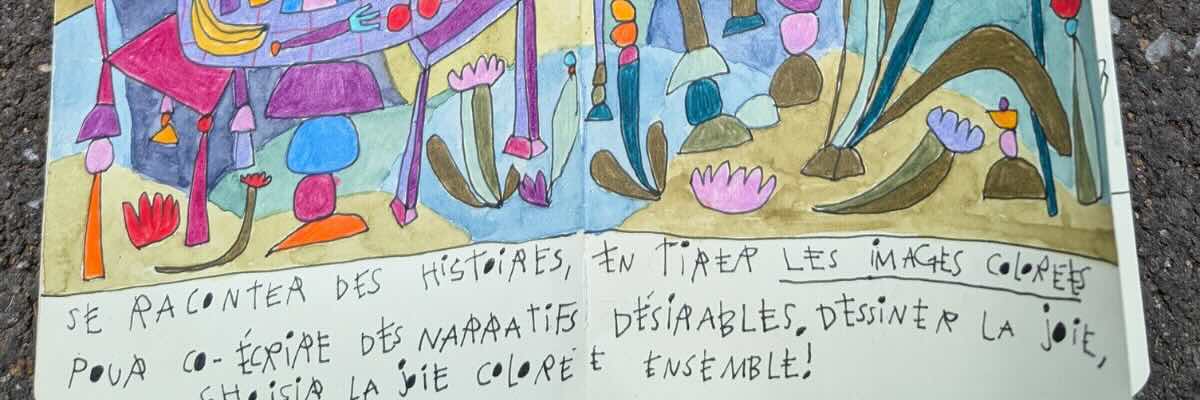 SE RACONTER DES HISTOIRES, EN TIRER LES IMAGES COLORÉES
POUR CO-ÉCRIRE DES NARRATIFS DÉSIRABLES. DESSINER LA JOIE,
CHOISIR LA JOIE COLORÉE ENSEMBLE!